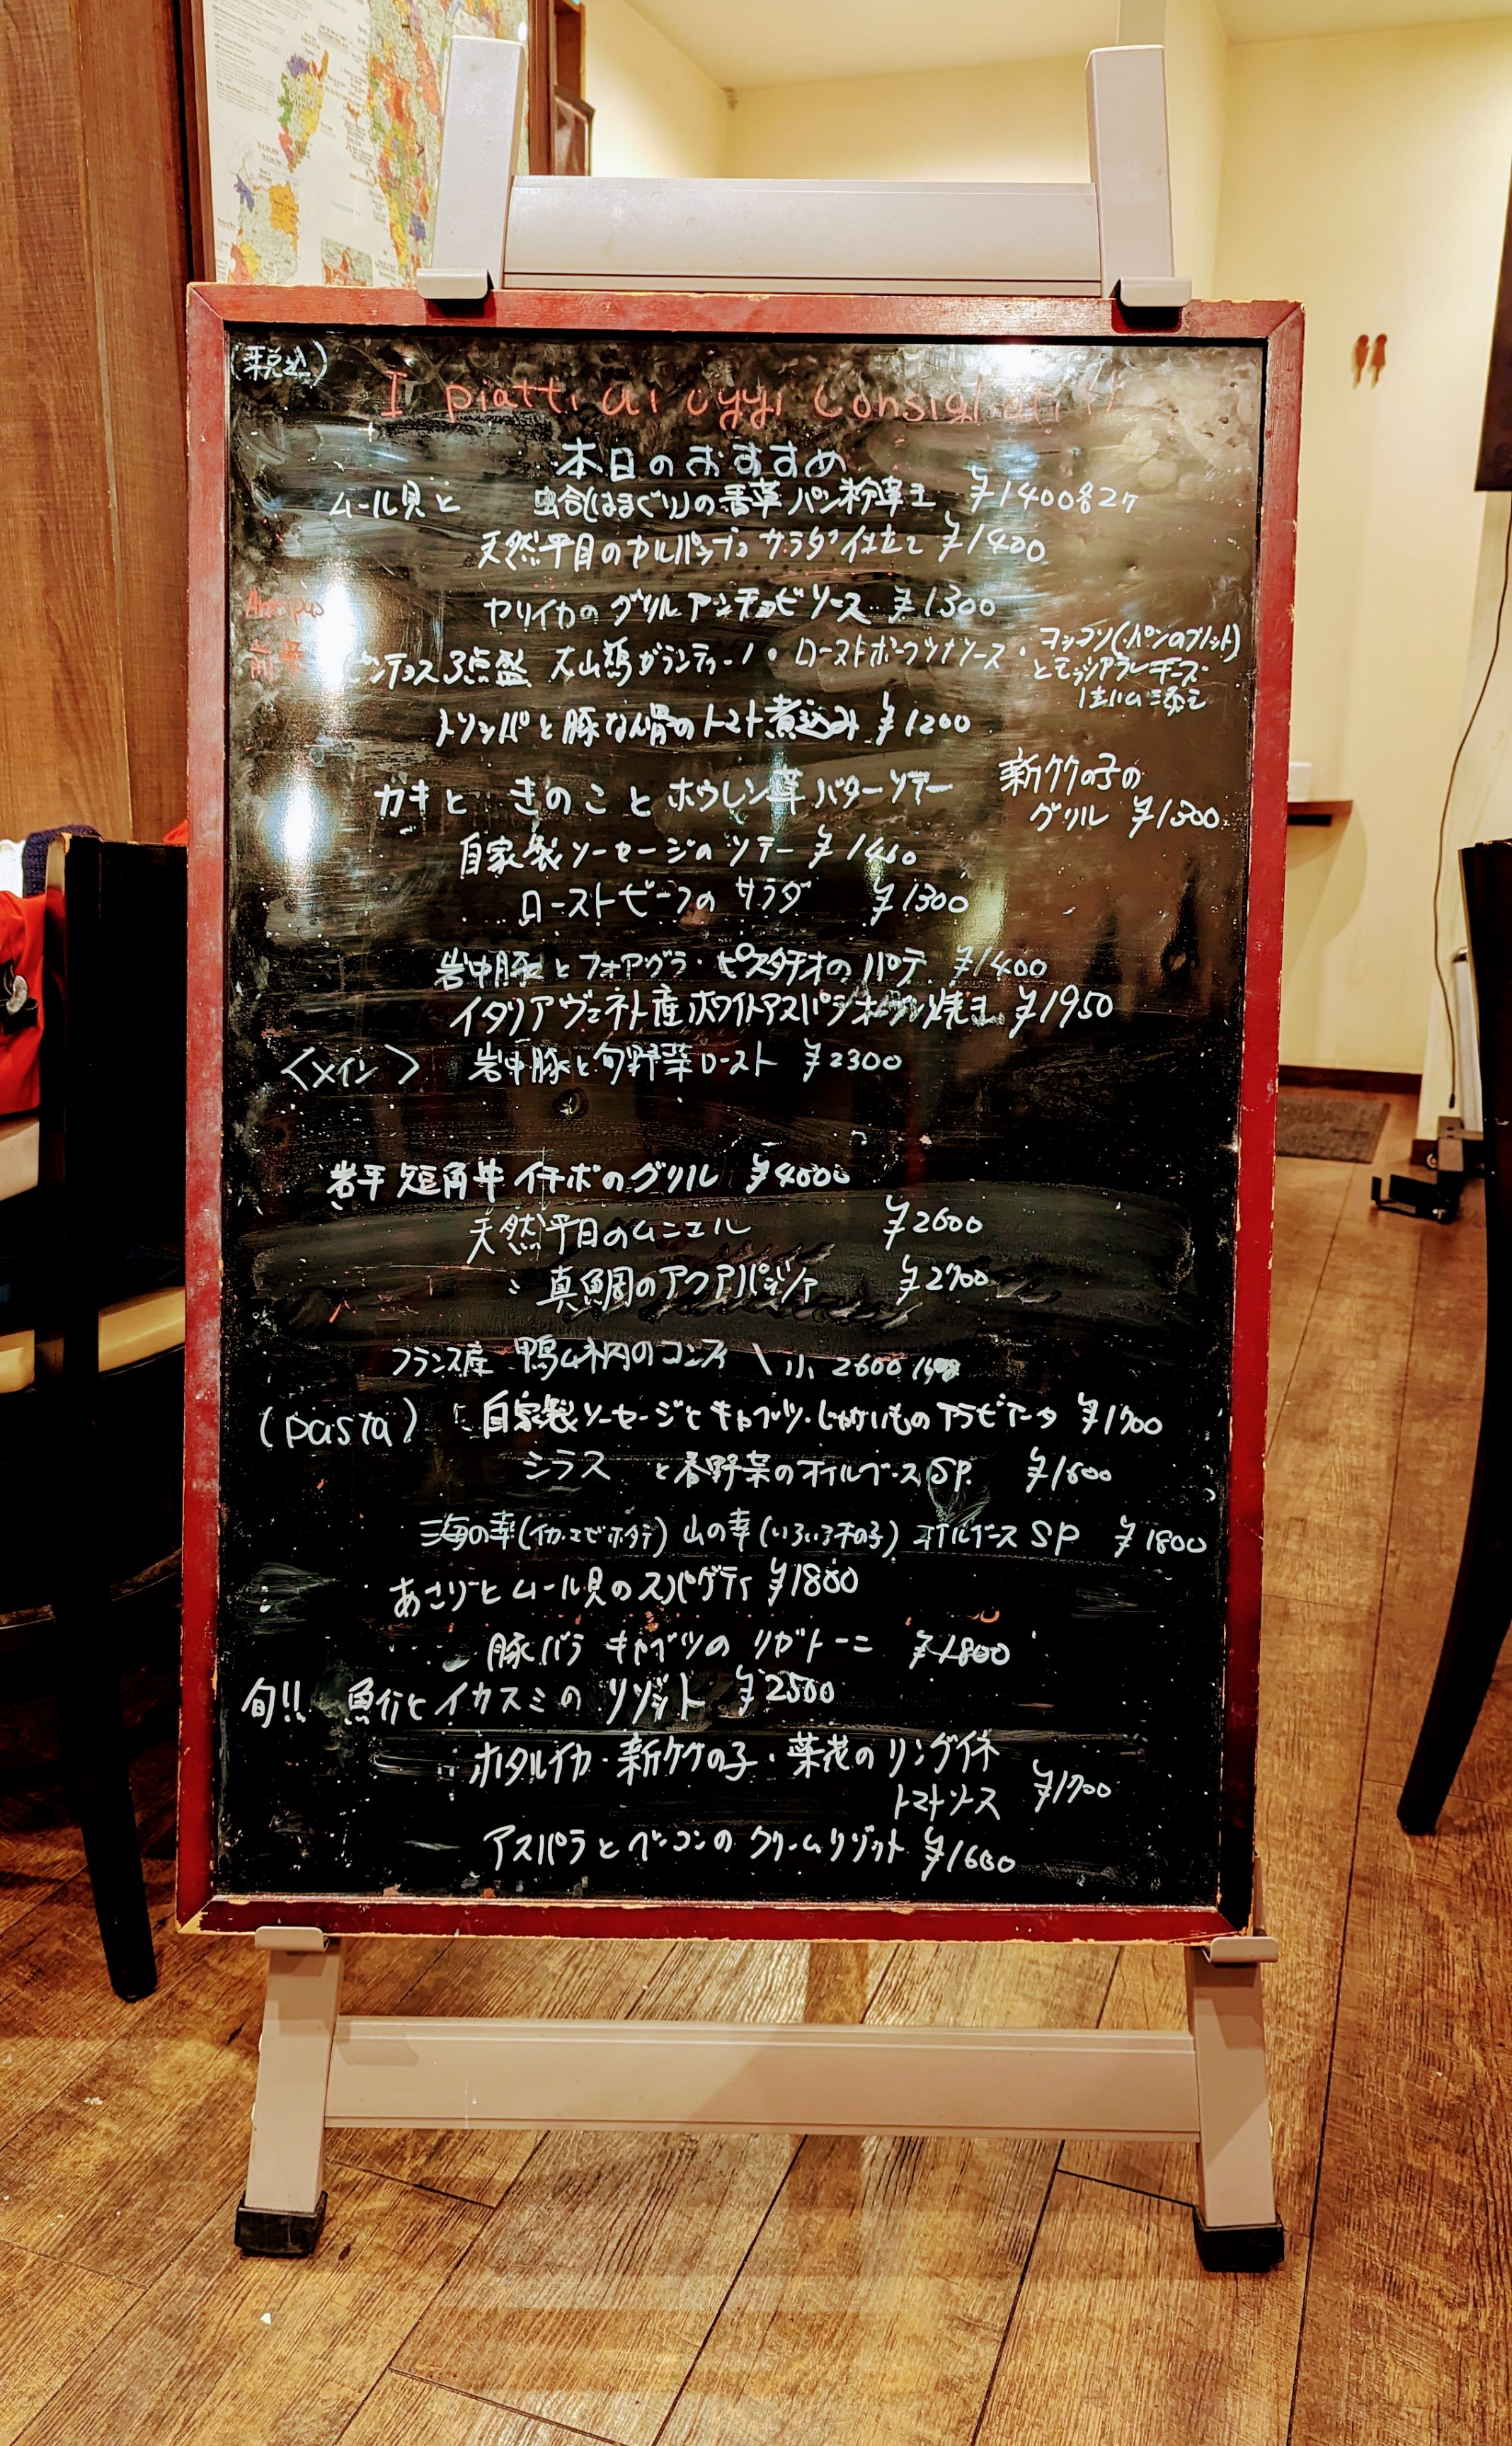 (税込)
I piatti di oggi consigliati!!
本日のおすすめ
ムール貝と 蛤(はまぐり)の香草パン粉 ¥1400各2ケ
天然平目のカルパッチョ サラダ仕立て ¥1400
ヤリイカのグリルアンチョビソース ¥1300
前菜
3点盛 大山鶏ガランティーノ・ローストポークツナソース・
とモッツアレラチーズ
生ハム添え
トリッパと豚なん骨のトマト煮込み ¥1200
カキと きのこ と ホウレン草バターソテー
新タケの子の
グリル ¥1300
自家製ソーセージのソテー ¥1400
ローストビーフの サラダ ¥1300
岩中豚とフォアグラ・ピスタチオのパテ ¥1400
イタリアヴェネト産ホワイトアスパラオーブン焼き ¥1950
<メイン> 岩中豚と旬野菜ロースト ¥2300
短角牛イチボのグリル ¥4000
天然平目のムニエル ¥2600
真鯛のアクアパッツァ ¥2700
フランス産 鴨ムネ肉のコンフィ 小 2600
(pasta) 自家製ソーセージとキャベツ・じゃがいものアラビアータ ¥1700
シラス と春野菜のオイルベースSP. ¥1600
海の幸(イカ・エビ・ホタテ) 山の幸(いろいろ木の子) オイルベース SP ¥1800
あさりとムール貝のスパゲティ ¥1800
豚バラ キャベツの リガトーニ ¥1800
旬!! 魚介とイカスミの リゾット ¥2500
ホタルイカ・新タケの子・菜花のリングイネ
トマトソース ¥1700
アスパラとベーコンの クリームリゾット ¥1600